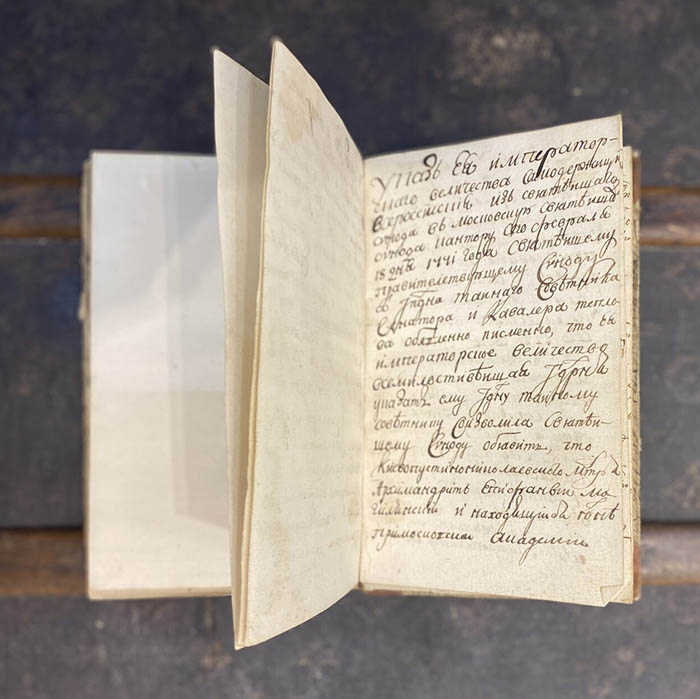 Указъ Ея император-
скаго величества Самодержицы
всероссiйскiя изъ святѣйшаго
сѵнода въ московскую святѣйша
сѵнода кантору сего февраля
18 дня 1741 года святѣйшему
правителствующему Сѵноду
таннаго совѣтника
Сенатора и Кавалера
объявленно писменно, что ея
императорское величество
всемилостивѣйшая Гдрня
указать ему Гдну таиному
совѣтнику Соизволила святѣй-
шему Сѵноду объявить, что
Киевопустиннониколаевского мнтря
Архимандритъ
и находящiйся нынѣ
при московскои академии